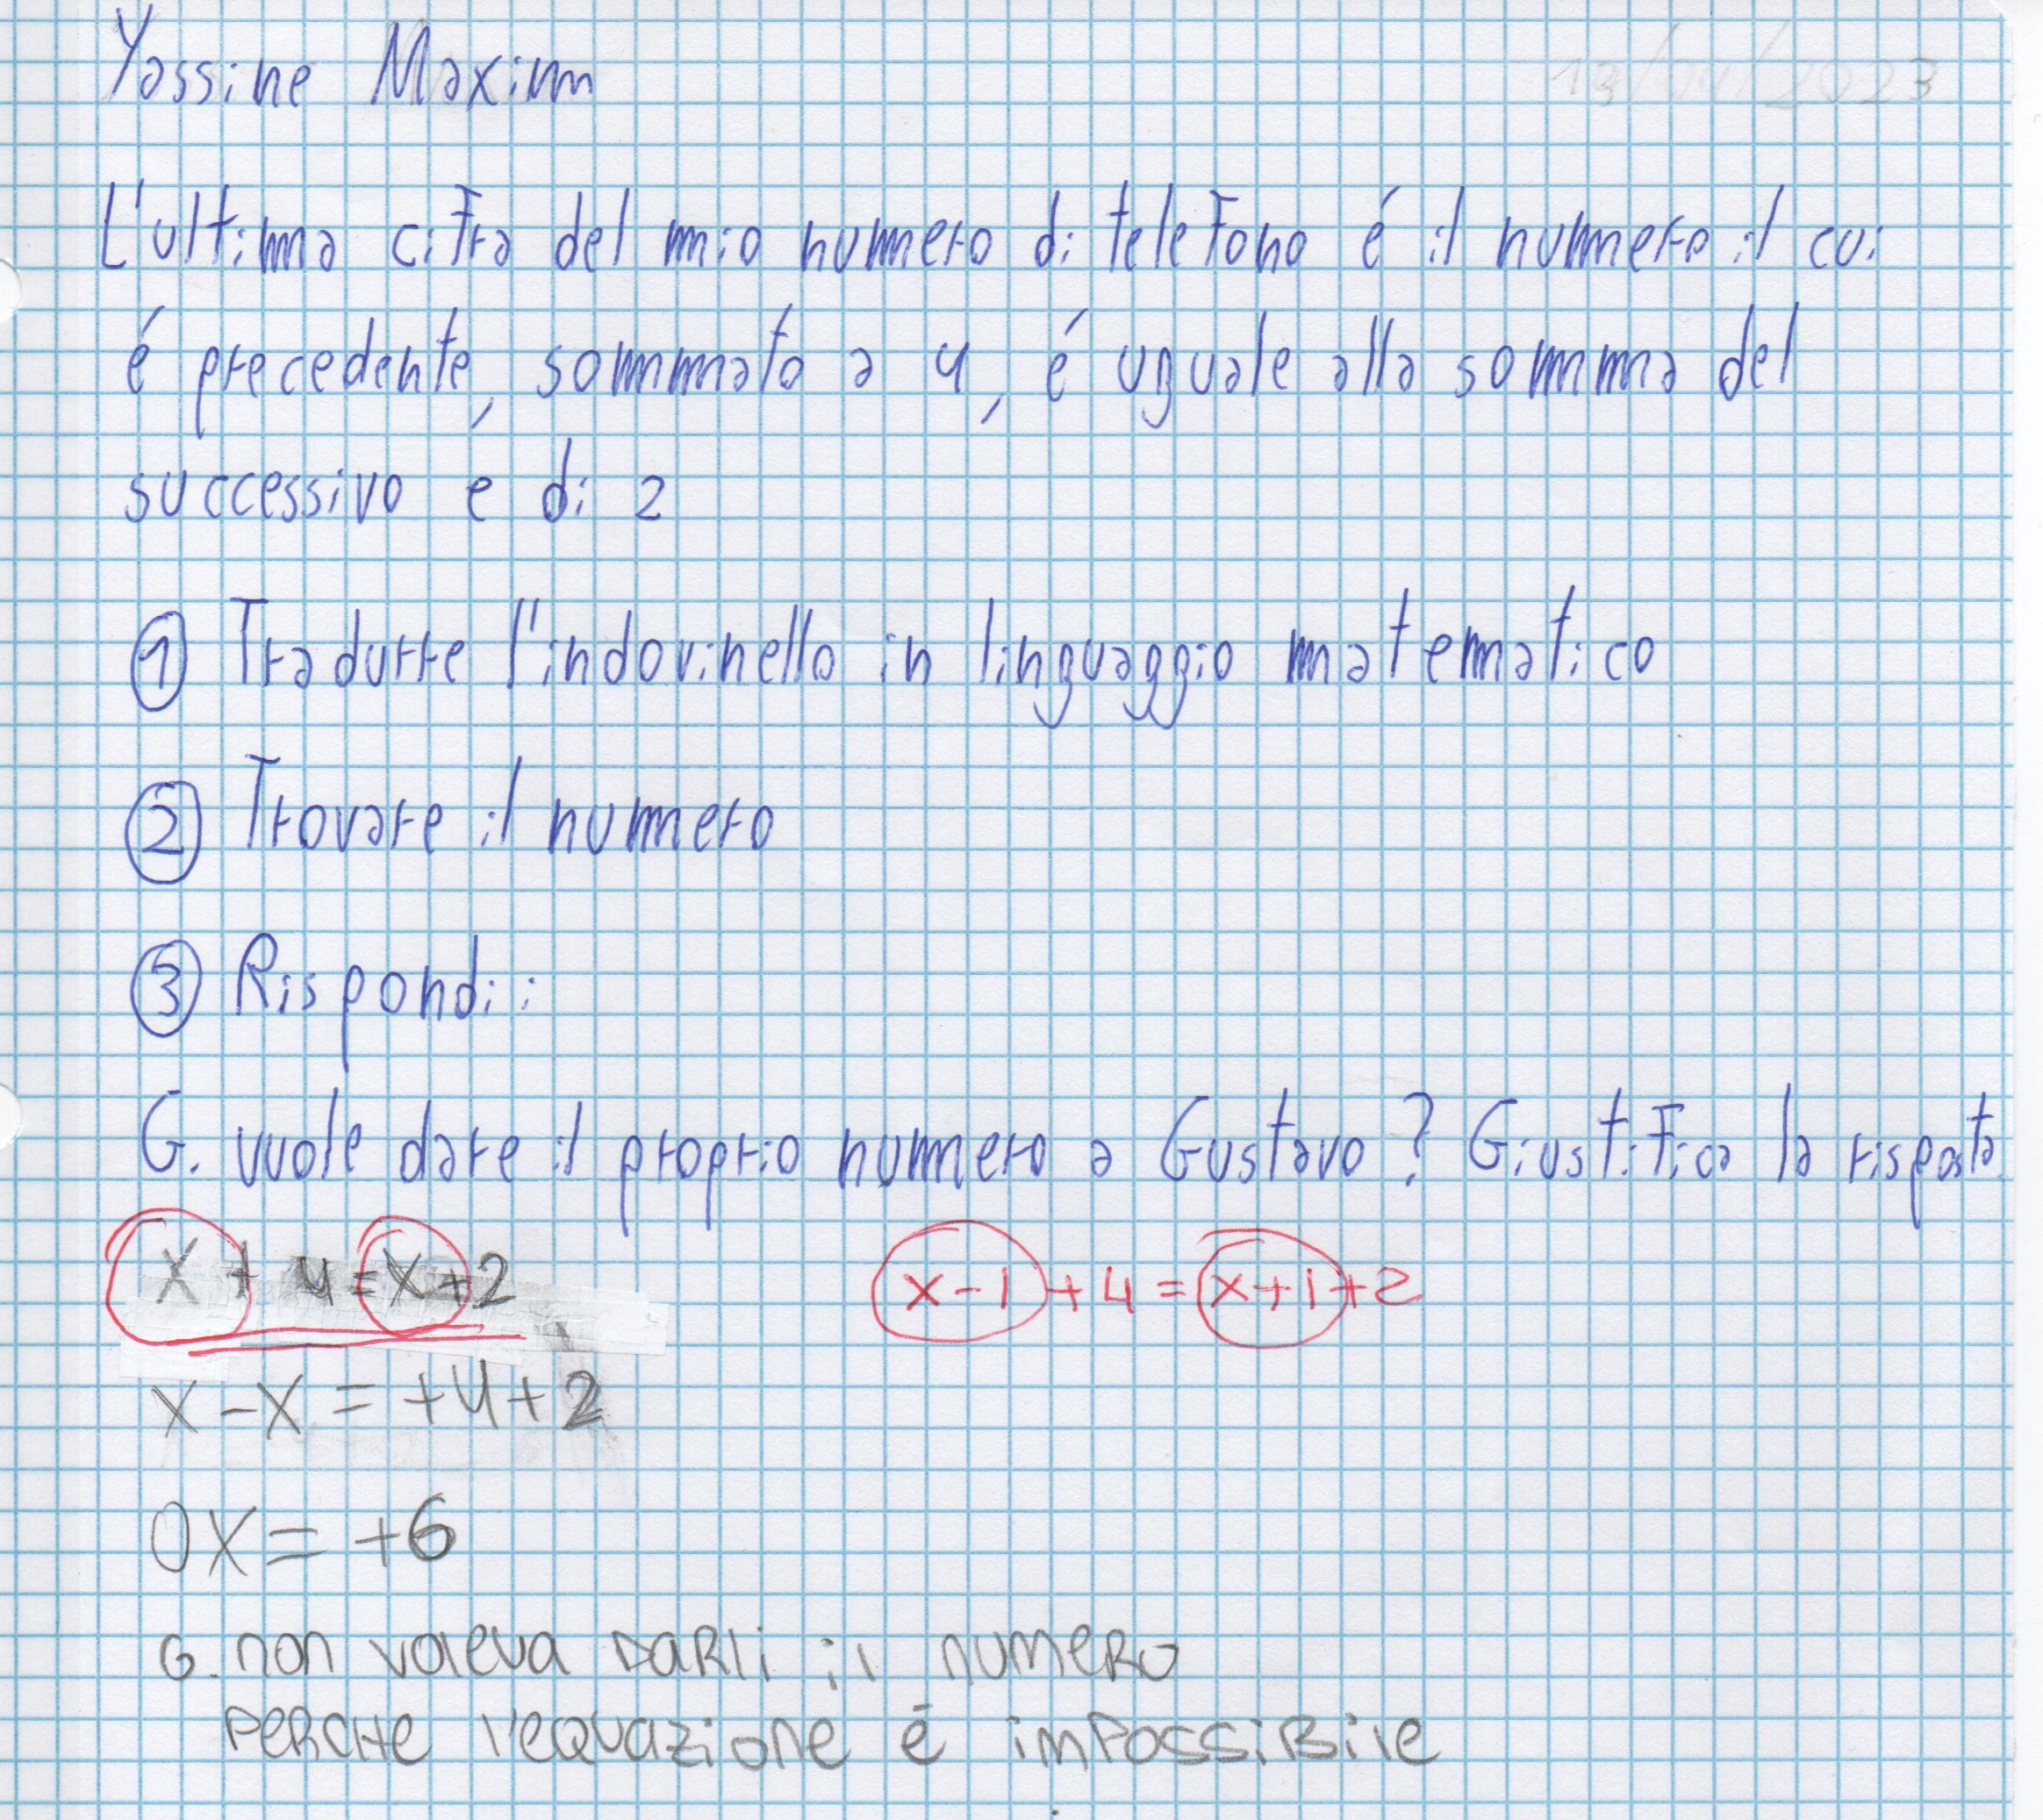 Yassine Maxim
19/04/2023
L'ultima cifra del mio numero di telefono é il numero il cui
é precedente, sommato a 4, é uguale alla somma del
successivo e di 2
① Tradurre l'indovinello in linguaggio matematico
② Trovare il numero
③ Rispondi:
G. vuole dare il proprio numero a Gustavo? Giustifica la risposta.
x + 4 = x + 2
x - 1 + 4 = x + 1 + 2
x - x = +4 + 2
0x = +6
G. non voleva DARli il numero
PERCHE l'equazione é imPossiBile